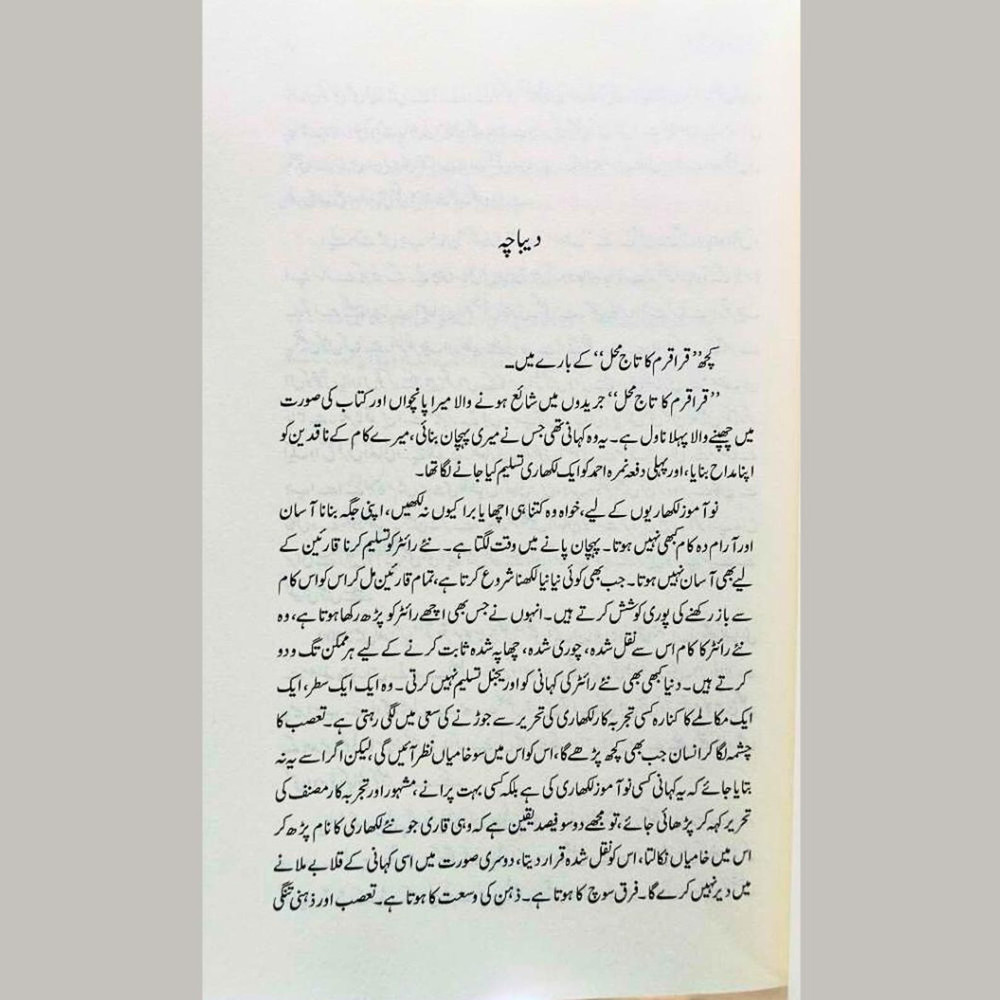 دیباچہ
کچھ ’’قراقرم کا تاج محل‘‘ کے بارے میں۔۔
’’قراقرم کا تاج محل‘‘ جریدوں میں شائع ہونے والا میرا پانچواں اور کتاب کی صورت
میں چھپنے والا پہلا ناول ہے۔ یہ وہ کہانی تھی جس نے میری پہچان بنائی، میرے کام کے ناقدین کو
اپنا مداح بنایا، اور پہلی دفعہ نمرہ احمد کو ایک لکھاری تسلیم کیا جانے لگا تھا۔
نو آموز لکھاریوں کے لیے، خواہ وہ کتنا ہی اچھا یا برا کیوں نہ لکھیں، اپنی جگہ بنانا آسان
اور آرام دہ کام کبھی نہیں ہوتا۔ پہچان پانے میں وقت لگتا ہے۔ نئے رائٹر کو تسلیم کرنا قارئین کے
لیے بھی آسان نہیں ہوتا۔ جب بھی کوئی نیا نیا لکھنا شروع کرتا ہے، تمام قارئین مل کر اس کو اس کام
سے باز رکھنے کی پوری کوشش کرتے ہیں۔ انہوں نے جس بھی اچھے رائٹر کو پڑھ رکھا ہوتا ہے، وہ
نئے رائٹر کا کام اس سے نقل شدہ، چوری شدہ، چھاپہ شدہ ثابت کرنے کے لیے ہر ممکن تگ و دو
کرتے ہیں۔ دنیا کبھی بھی نئے رائٹر کی کہانی کو اوریجنل تسلیم نہیں کرتی۔ وہ ایک ایک سطر، ایک
ایک مکالمے کا کنارہ کسی تجربہ کار لکھاری کی تحریر سے جوڑنے کی سعی میں لگی رہتی ہے۔ تعصب کا
چشمہ لگا کر انسان جب بھی کچھ پڑھے گا، اس کو اس میں سو خامیاں نظر آئیں گی، لیکن اگر اسے یہ نہ
بتایا جائے کہ یہ کہانی کسی نو آموز لکھاری کی ہے بلکہ کسی بہت پرانے، مشہور اور تجربہ کار مصنف کی
تحریر کہہ کر پڑھائی جائے، تو مجھے دو سو فیصد یقین ہے کہ وہی قاری جو نئے لکھاری کا نام پڑھ کر
اس میں خامیاں نکالتا، اس کو نقل شدہ قرار دیتا، دوسری صورت میں اسی کہانی کے قلابے ملانے
میں دیر نہیں کرے گا۔ فرق سوچ کا ہوتا ہے۔ ذہن کی وسعت کا ہوتا ہے۔ تعصب اور ذہنی تنگی